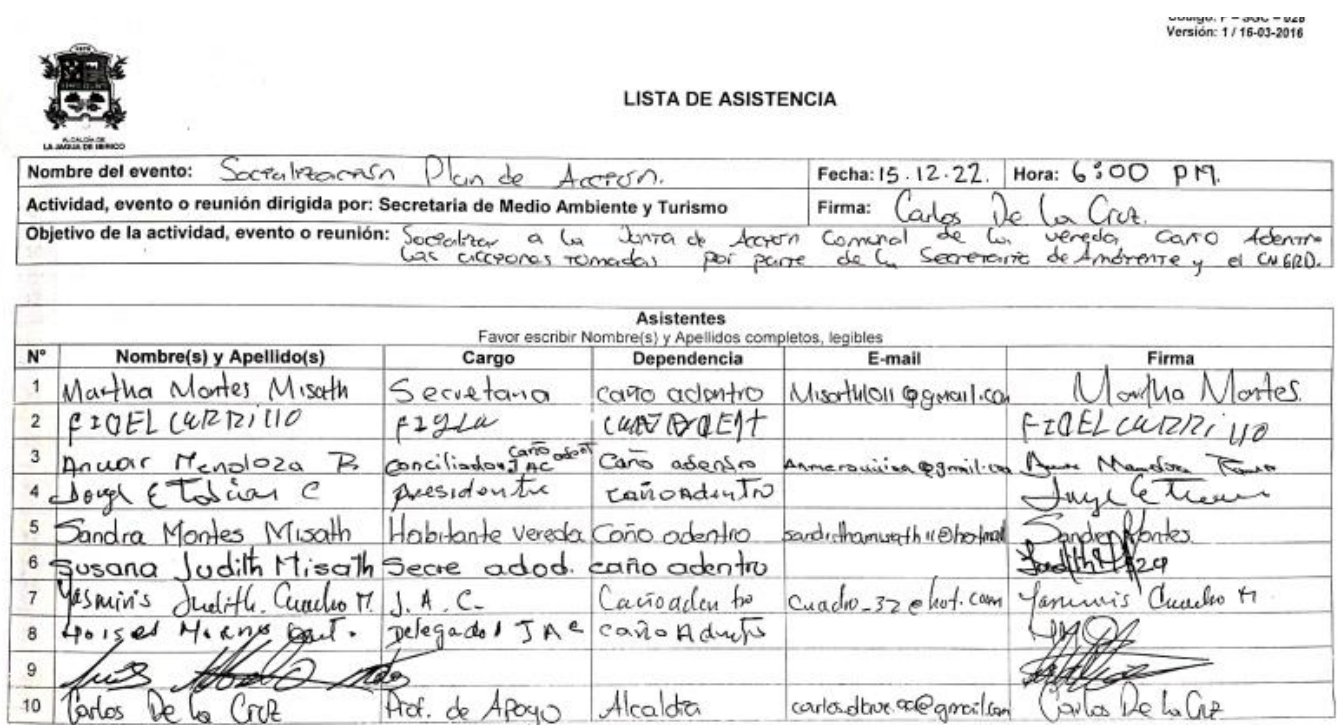 Código: F – SGC – 028
Versión: 1 / 16-03-2016
ALCALDÍA DE
LA JAGUA DE IBIRICO
LISTA DE ASISTENCIA
Nombre del evento: Socialización Plan de Acción. Fecha: 15.12.22. Hora: 6:00 PM.
Actividad, evento o reunión dirigida por: Secretaria de Medio Ambiente y Turismo Firma: Carlos De La Cruz.
Objetivo de la actividad, evento o reunión: Socializar a la Junta de Acción Comunal de la vereda Caño Adentro
las acciones tomadas por parte de la Secretaría de Ambiente y el
Asistentes
Favor escribir Nombre(s) y Apellidos completos, legibles
N° Nombre(s) y Apellido(s) Cargo Dependencia E-mail Firma
1 Martha Montes Misath Secretaria caño adentro Martha Montes
2 FIDEL CARRILLO FIDEL CARRILLO
3 Anuar Mendoza B conciliador JAC caño adent Caño adentro
4 Jorge E C presidente cañoadentro
5 Sandra Montes Misath Habitante vereda Caño adentro Sandra Montes
6 Susana Judith Misath Secre adod. caño adentro
7 Yasminis Judith Cuadro M. J.A.C. Cañoadentro cuadro_32@hot.com Yasminis Cuadro M
8 Moises Delegado JAC caño Adentro
9 Luis
10 Carlos De La Cruz Prof. de Apoyo Alcaldia Carlos De La Cruz